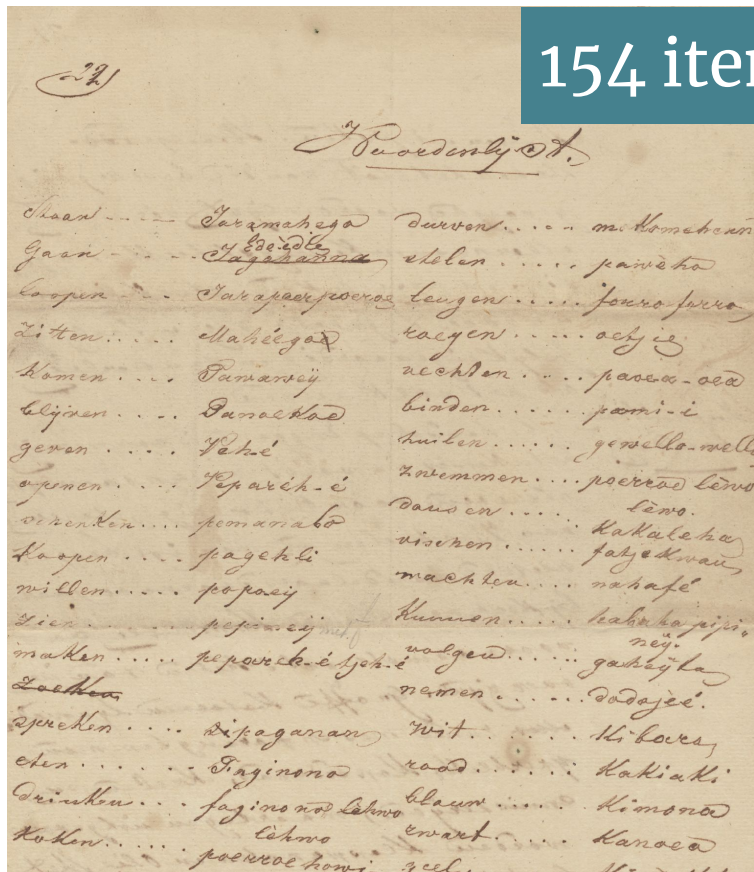 154 iter
22
Woordenlijst.
Staan - - - - Jaramahega
Gaan - - - - - Edeidle
Jagahanna
loopen - - - Jarapoerpoeroe
Zitten . . . . . Mahéegoe
Komen . . . . Pawaweij
blijven . . . . Panoekoe
geven . . . . Véh-é
openen . . . . Peparéh-é
schenken . . . . pemanabo
Koopen . . . . pagehli
willen . . . . popoeij
Zien . . . . . pepineij
maken . . . . . peparéh-é tjeh-é
Zoeken
spreken . . . . sipaganan
eten . . . . . . Finginono
drinken . . . faginono lèhwo
lèhwo
Koken . . . . . . poerroehowi
durven . . . . . m. Komehenn
stelen . . . . . pawèha
leugen . . . . . forro forro
roepen . . . . . oetjie
vechten . . . . paoea-oea
binden . . . . . . pami-i
huilen . . . . . . gewella-wella
zwemmen . . . . . poerroe lèwo
lèwo.
dansen . . . . . KaKaleha
visschen . . . . fatjeKwau
wachten . . . . nahafé
Kunnen . . . . hahahapipi
neij.
volgen . . . . . gaheijta
nemen . . . . . . dodojeé.
Wit . . . . . . Kiboera
rood . . . . . . KakiaKi
blauw . . . . . Kimona
zwart . . . . . Kanoea